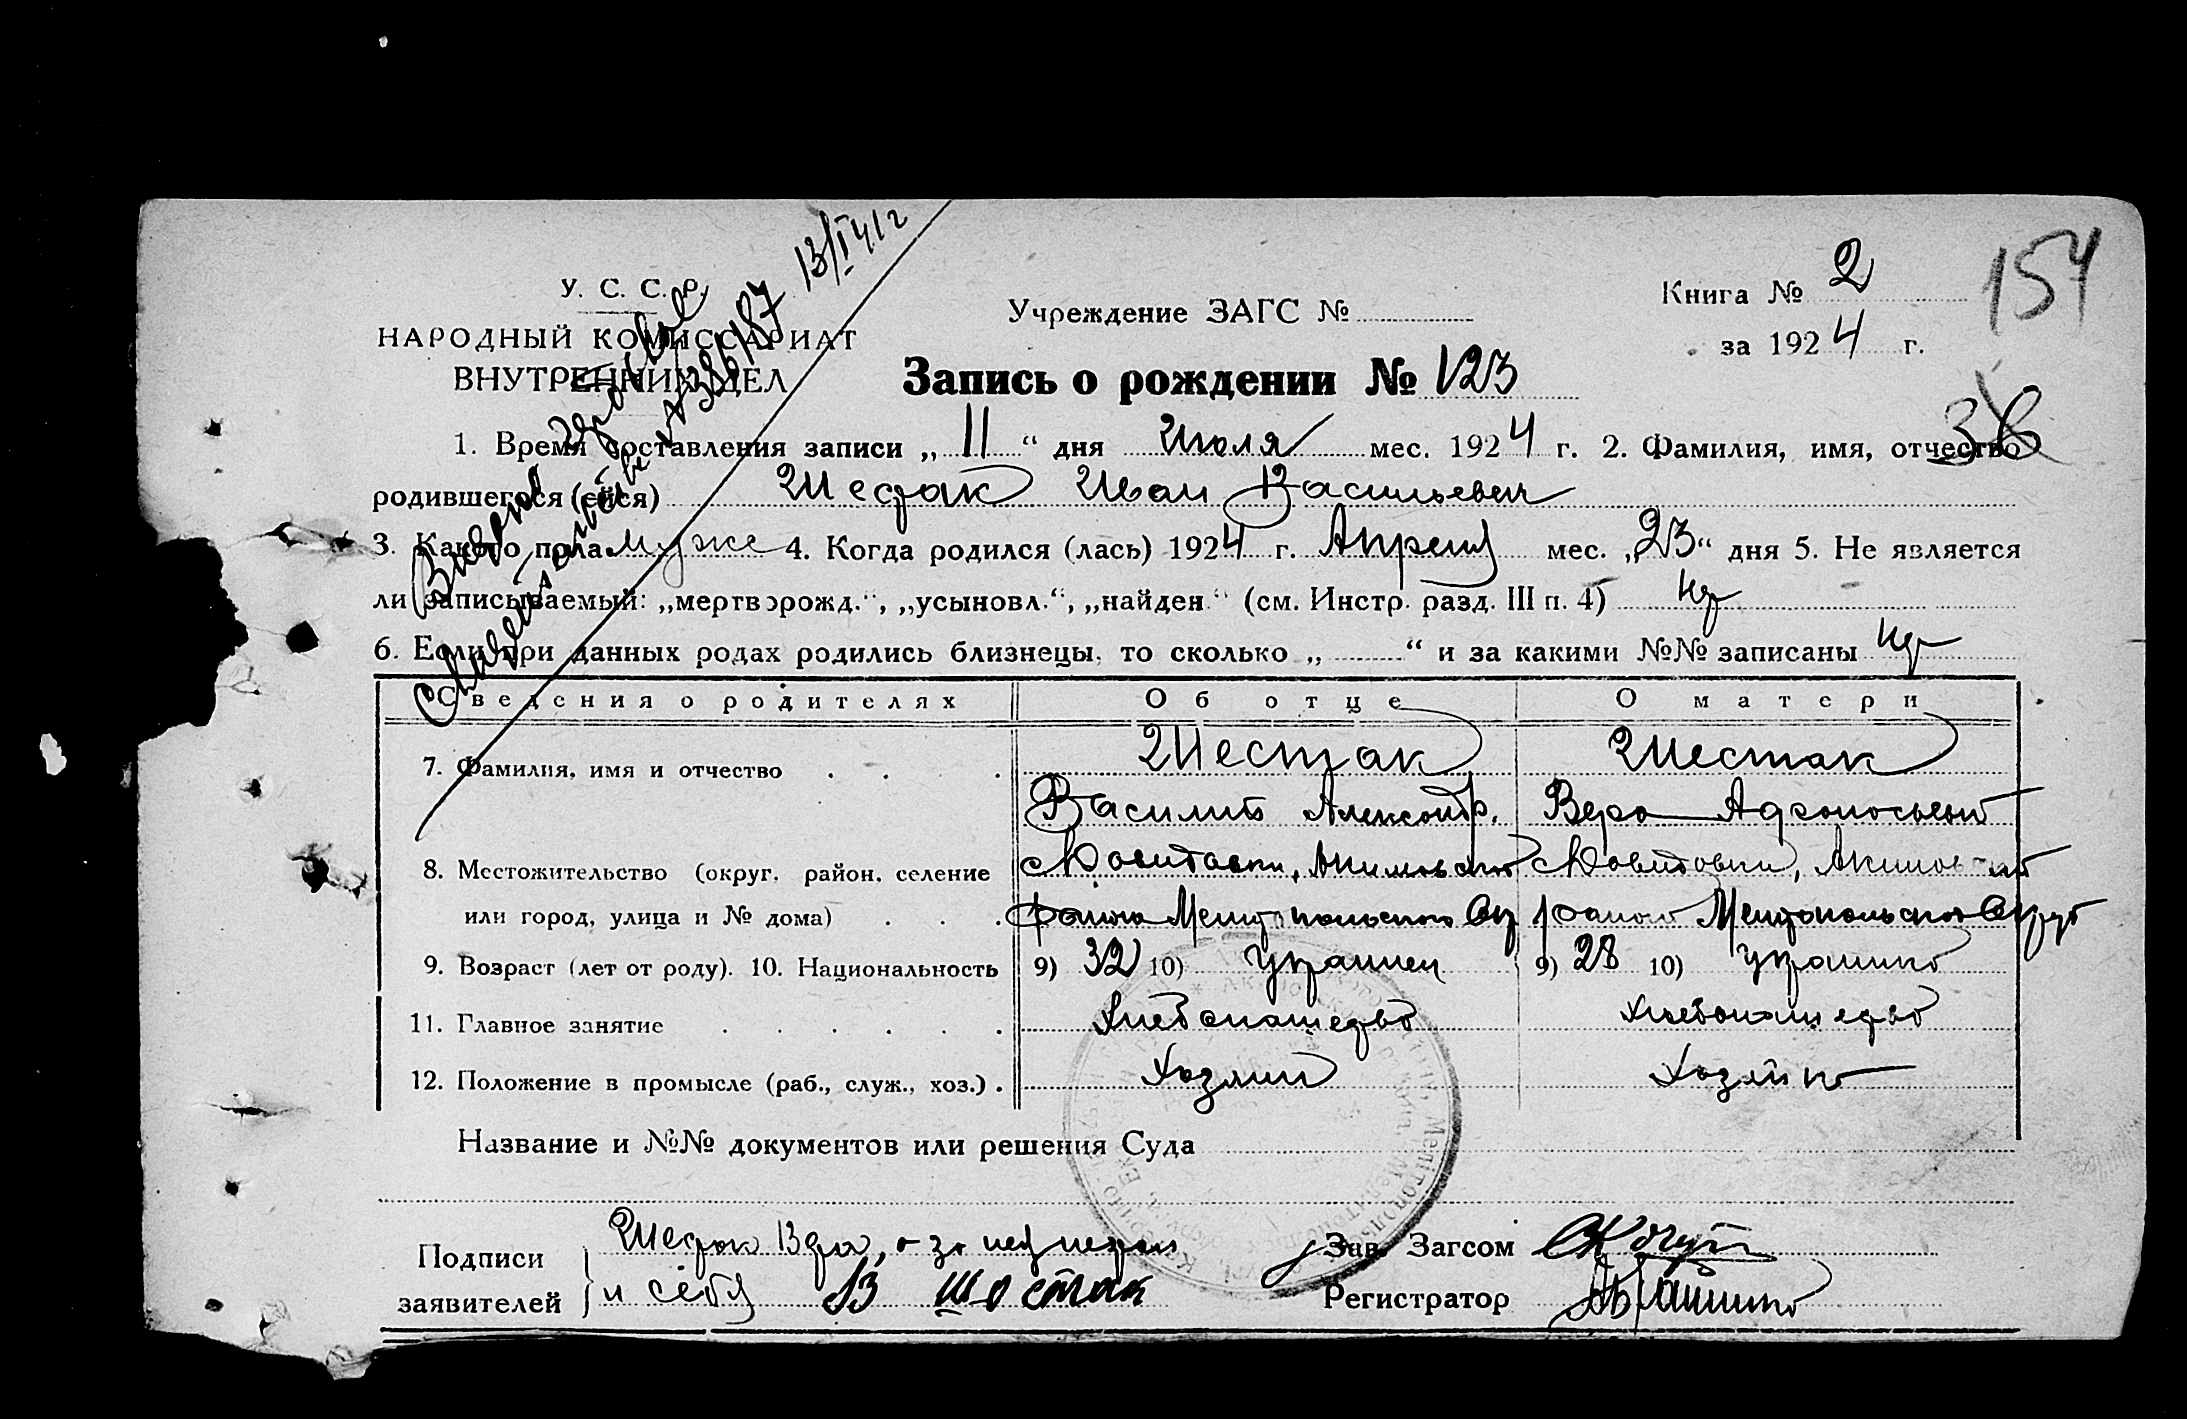 154
У. С. С. Р.
НАРОДНЫЙ КОМИССАРИАТ
ВНУТРЕННИХ ДЕЛ
Учреждение ЗАГС №
Книга № 2
за 1924 г.
13/I 41 г
Запись о рождении № 123
1. Время составления записи „11“ дня Июля мес. 1924 г. 2. Фамилия, имя, отчество
родившегося (ейся) Шестак Иван Васильевич
3. Какого пола муже 4. Когда родился (лась) 1924 г. Апреля мес. „23“ дня 5. Не является
ли записываемый: „мертворожд.“, „усыновл.“, „найден.“ (см. Инстр. разд. III п. 4)
6. Если при данных родах родились близнецы, то сколько „ “ и за какими №№ записаны
Сведения о родителях Об отце О матери
7. Фамилия, имя и отчество Шестак Шестак
Василий Александр. Вера
8. Местожительство (округ, район, селение
или город, улица и № дома) района Мелитопольского Окр района Мелитопольского Округа
9. Возраст (лет от роду). 10. Национальность 9) 32 10) Украинец 9) 28 10) Украинка
11. Главное занятие Хлебопашество Хлебопашество
12. Положение в промысле (раб., служ., хоз.) Хозяин Хозяйка
Название и №№ документов или решения Суда
Подписи
заявителей
и себя В Шостак
Зав. Загсом
Регистратор